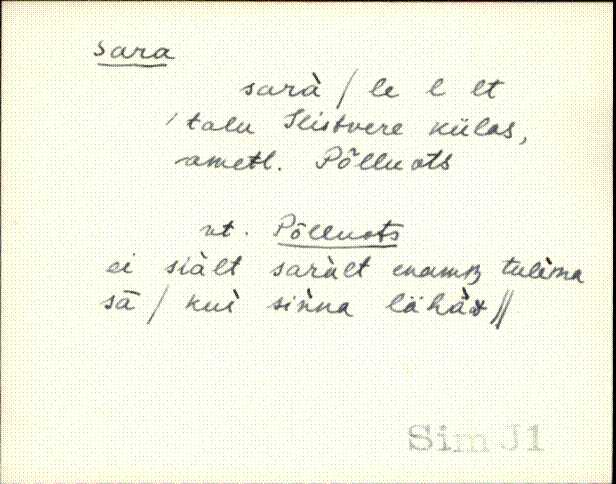 sara
sarà / le l lt
talu Ilistvere külas,
ametl. Põlluots
vt. Põlluots
ei siàlt saràlt enamB tulèma
sā / kui sinna lähàD //
Sim J1